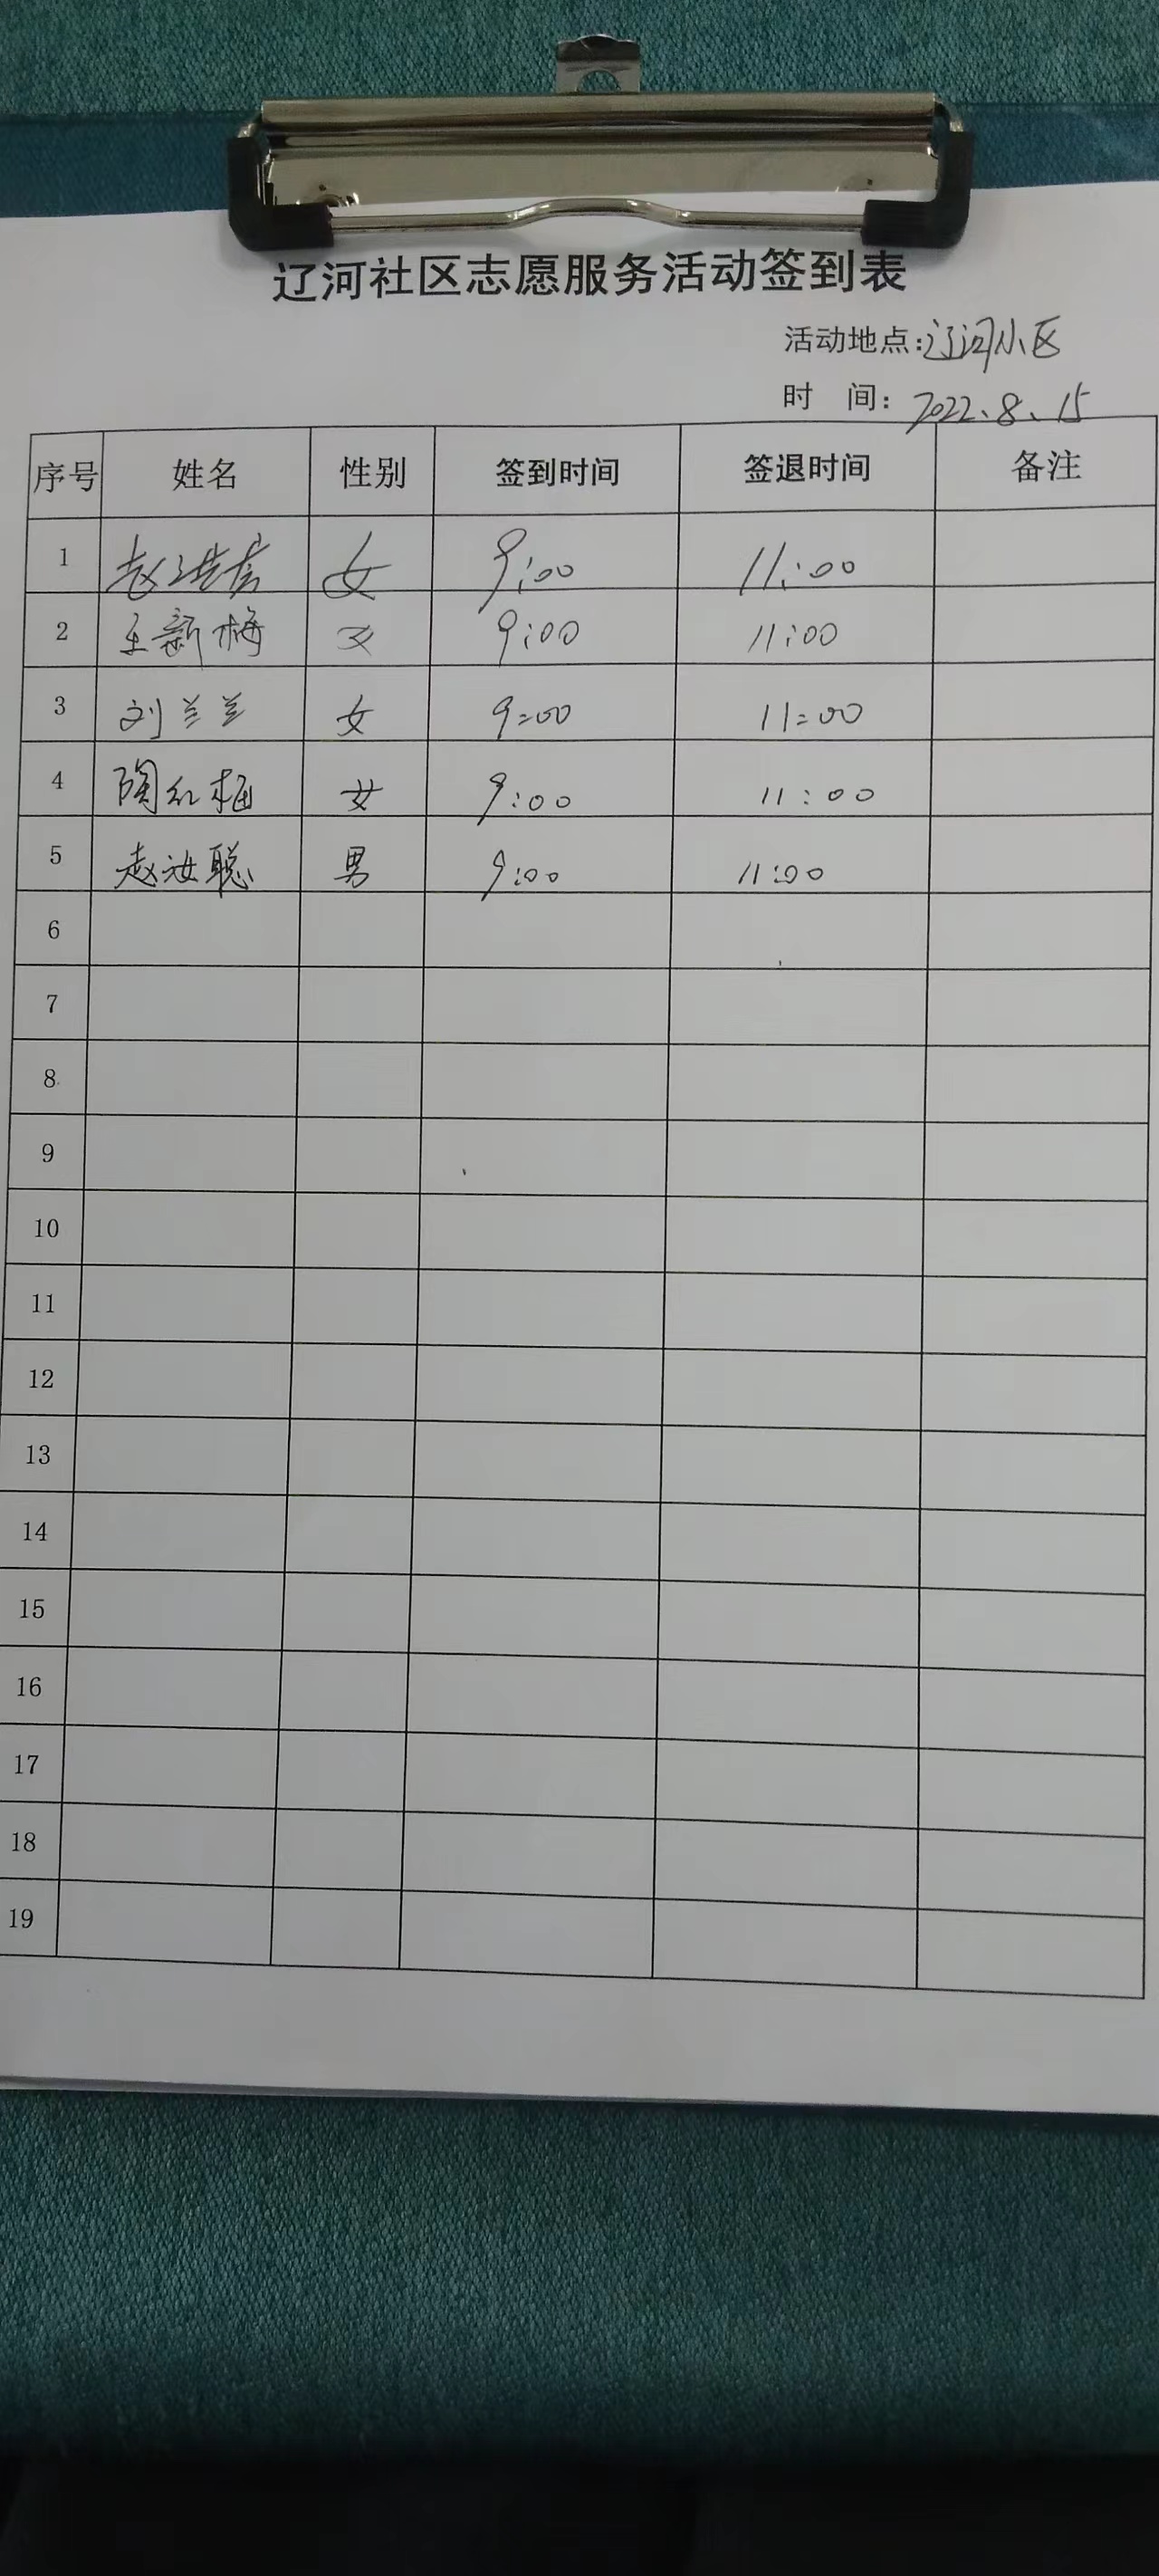 辽河社区志愿服务活动签到表
活动地点:辽河小区
时 间: 2022、8、15
序号 姓名 性别 签到时间 签退时间 备注
1 赵 女 9:00 11:00
2 王新梅 女 9:00 11:00
3 刘兰兰 女 9:00 11:00
4 陶红梅 女 9:00 11:00
5 赵汝聪 男 9:00 11:00
6
7
8
9
10
11
12
13
14
15
16
17
18
19